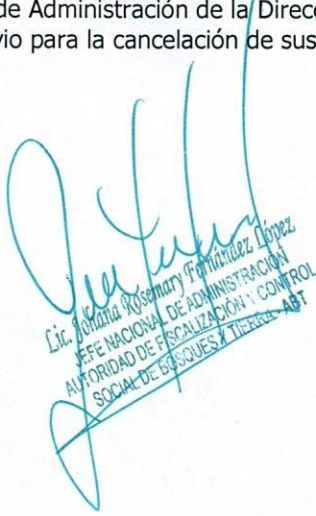 de Administración de la Direcc
vio para la cancelación de sus
Lic. Johana Rosemary Fernández López
JEFE NACIONAL DE ADMINISTRACIÓN
AUTORIDAD DE FISCALIZACIÓN Y CONTROL
SOCIAL DE BOSQUES Y TIERRA - ABT